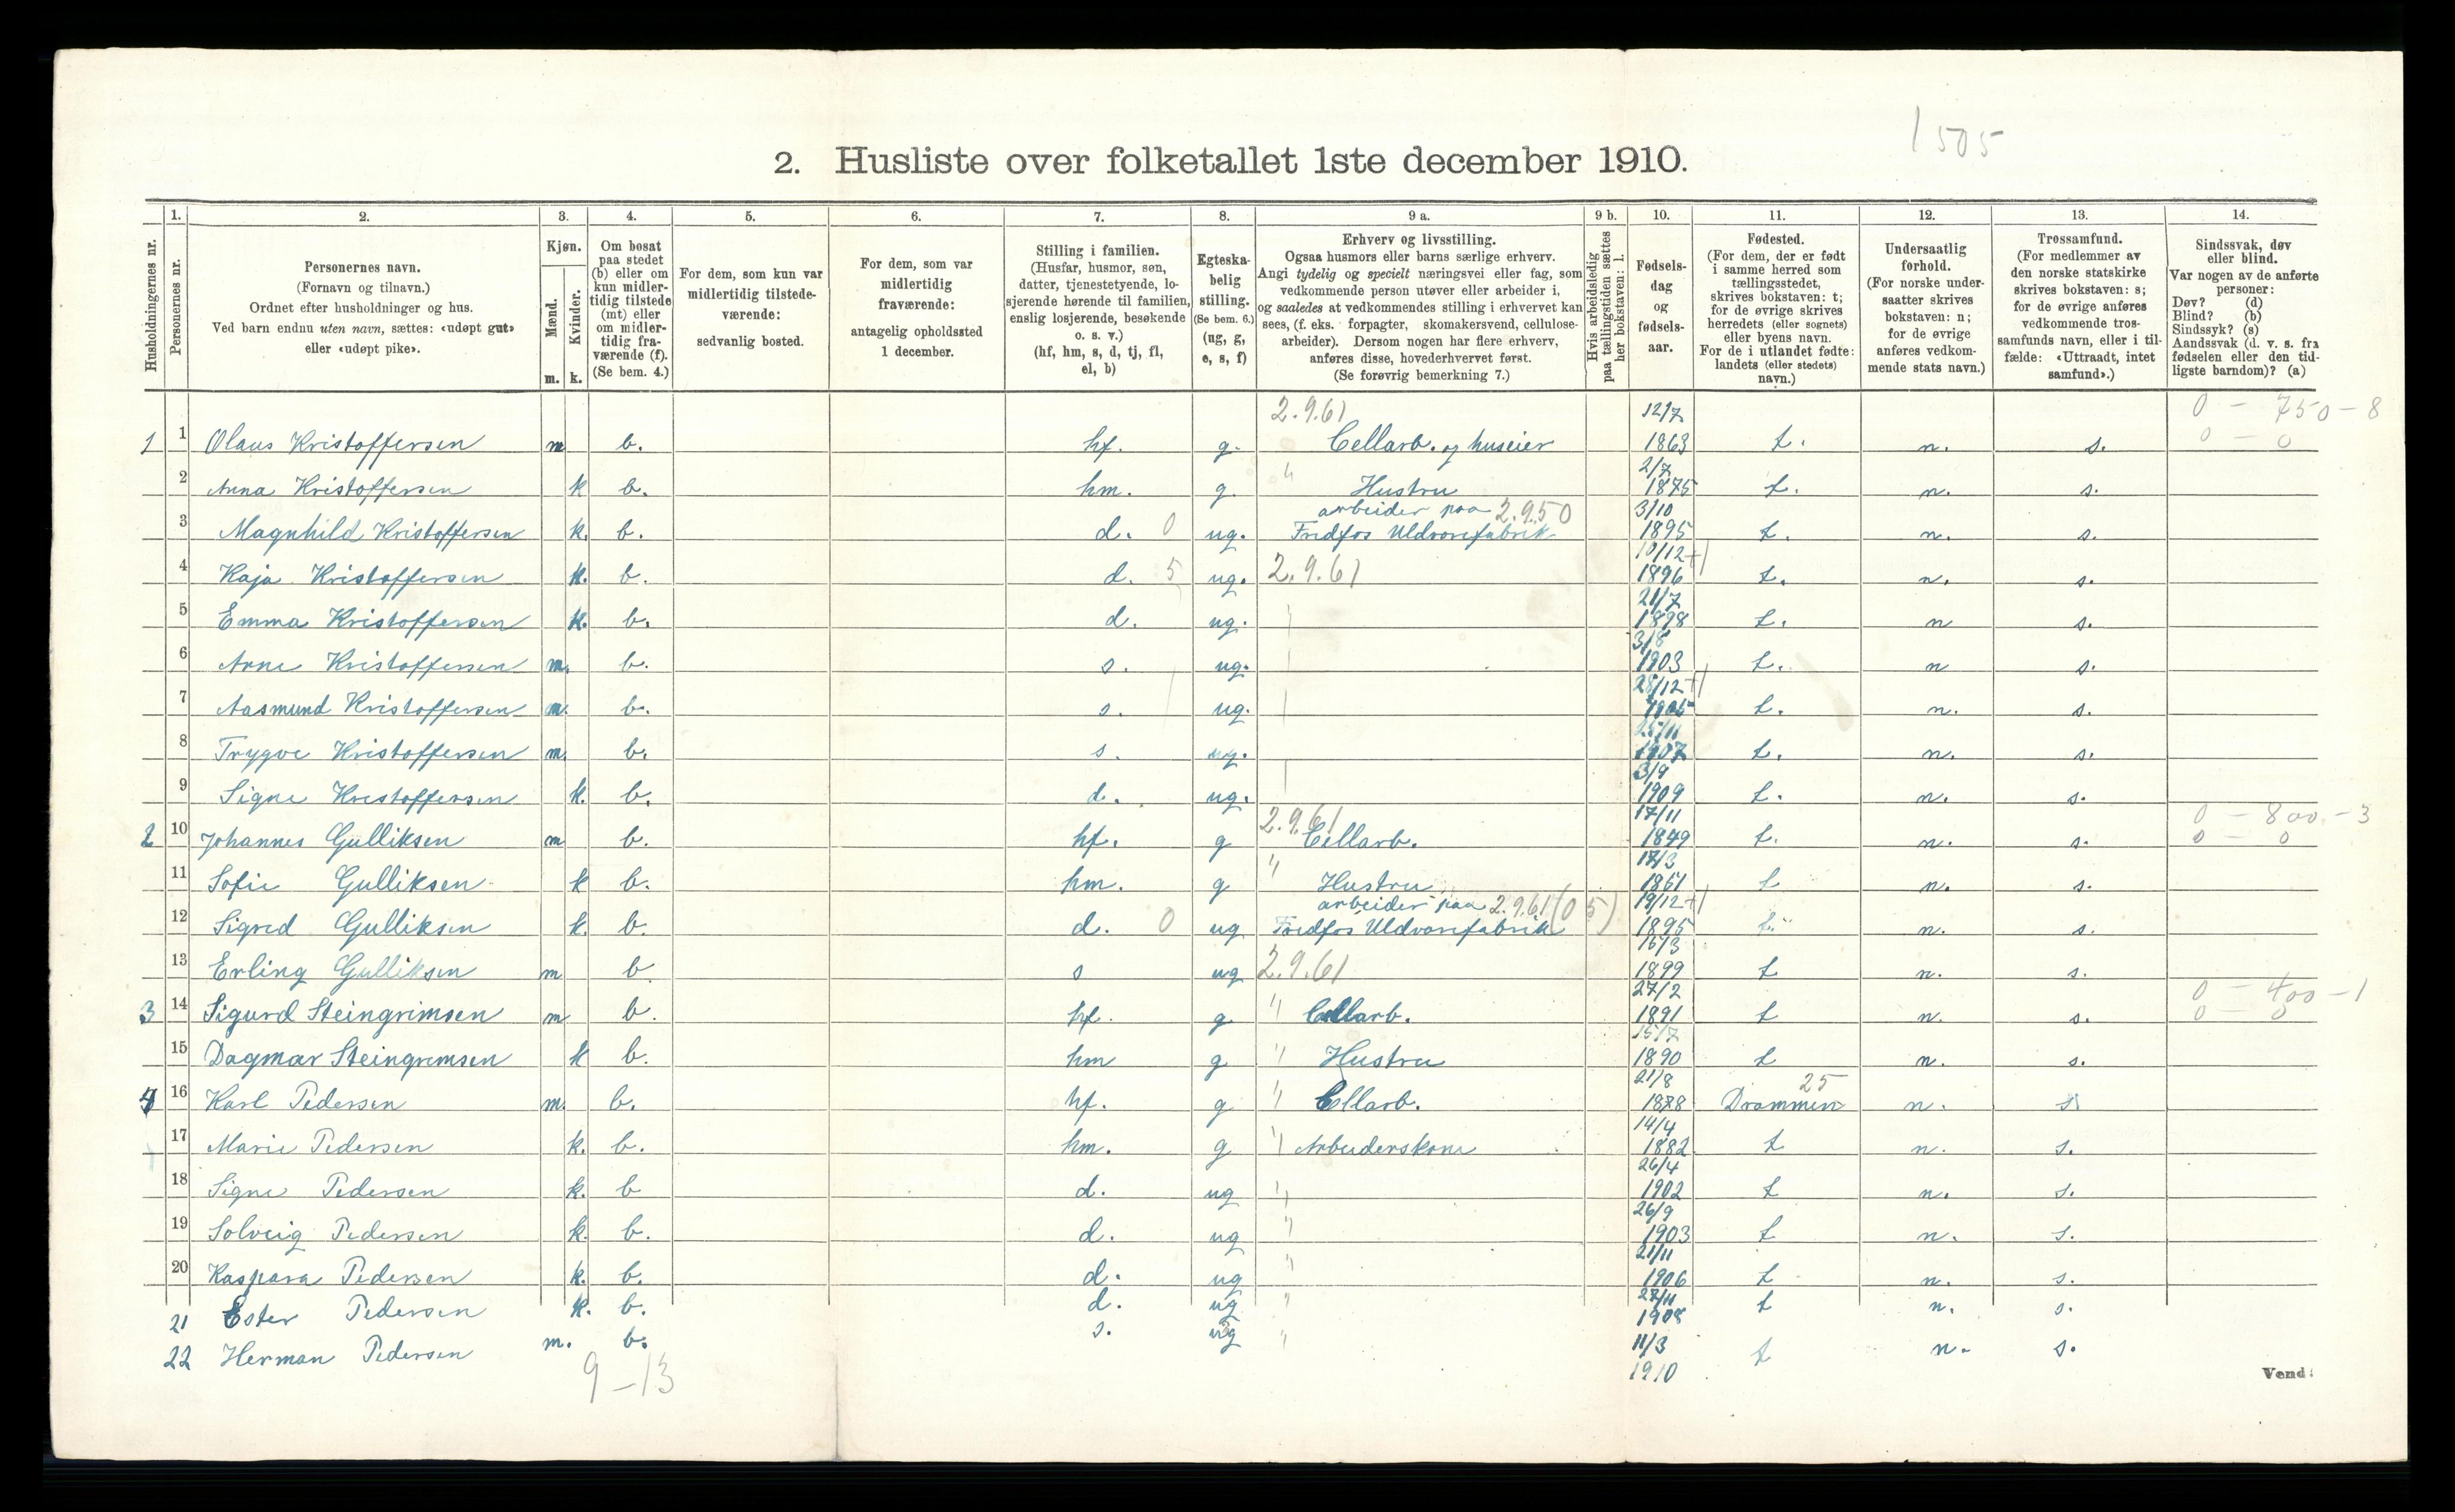 1505
2. Husliste over folketallet 1ste december 1910.
Husholdningernes nr.
1. Personernes nr.
2. Personernes navn. (Fornavn og tilnavn.) Ordnet efter husholdninger og hus. Ved barn endnu uten navn, sættes: «udøpt gut» eller «udøpt pike».
3. Kjøn. Mænd. m. Kvinder. k.
4. Om bosat paa stedet (b) eller om kun midlertidig tilstede (mt) eller om midlertidig fraværende (f). (Se bem. 4.)
5. For dem, som kun var midlertidig tilstedeværende: sedvanlig bosted.
6. For dem, som var midlertidig fraværende: antagelig opholdssted 1 december.
7. Stilling i familien. (Husfar, husmor, søn, datter, tjenestetyende, losjerende hørende til familien, enslig losjerende, besøkende o. s. v.) (hf, hm, s, d, tj, fl, el, b)
8. Egteskabelig stilling. (Se bem. 6.) (ug, g, e, s, f)
9 a. Erhverv og livsstilling. Ogsaa husmors eller barns særlige erhverv. Angi tydelig og specielt næringsvei eller fag, som vedkommende person utøver eller arbeider i, og saaledes at vedkommendes stilling i erhvervet kan sees, (f. eks. forpagter, skomakersvend, cellulosearbeider). Dersom nogen har flere erhverv, anføres disse, hovederhvervet først. (Se forøvrig bemerkning 7.)
9 b. Hvis arbeidsledig paa tællingstiden sættes her bokstaven: l.
10. Fødselsdag og fødselsaar.
11. Fødested. (For dem, der er født i samme herred som tællingsstedet, skrives bokstaven: t; for de øvrige skrives herredets (eller sognets) eller byens navn. For de i utlandet fødte: landets (eller stedets) navn.)
12. Undersaatlig forhold. (For norske undersaatter skrives bokstaven: n; for de øvrige anføres vedkommende stats navn.)
13. Trossamfund. (For medlemmer av den norske statskirke skrives bokstaven: s; for de øvrige anføres vedkommende trossamfunds navn, eller i tilfælde: «Uttraadt, intet samfund».)
14. Sindssvak, døv eller blind. Var nogen av de anførte personer: Døv? (d) Blind? (b) Sindssyk? (s) Aandssvak (d. v. s. fra fødselen eller den tidligste barndom)? (a)
2.9.61 12/7 0 - 750 - 8
1 1 Olaus Kristoffersen m b. hf. g. Cellarb. og huseier 1863 t. n. s. 0 - 0
2 Anna Kristoffersen k b. hm. g " Hustru 2/7 1875 t. n. s.
3 Magnhild Kristoffersen k. b. d. 0 ug. arbeider paa 2.9.50 Fredfos Uldvarefabrik 3/10 1895 t. n. s.
4 Kaja Kristoffersen k. b. d. 5 ug. 2.9.61 10/12 + 1896 t. n. s.
5 Emma Kristoffersen k. b. d. ug. 21/7 1898 t. n s.
6 Arne Kristoffersen m. b. s. ug. 3/8 1903 t. n s.
7 Aasmund Kristoffersen m. b. s. ug. 28/12 + 1905 t. n. s.
8 Trygve Kristoffersen m. b. s. ug. 1907 t. n. s.
9 Signe Kristoffersen k. b. d. ug. 3/9 1909 t. n. s.
2 10 Johannes Gulliksen m b. hf. g 2.9.61 Cellarb. 17/11 1849 t. n. s. 0 - 800 - 3 0 - 0
11 Sofie Gulliksen k b. hm. g " Hustru 17/3 1851 t n. s.
12 Sigrid Gulliksen k. b. d. 0 ug arbeider paa 2.9.61 (05) Fredfos Uldvarefabrik 19/12 + 1895 t. n. s.
13 Erling Gulliksen m b s ug 2.9.61 15/3 1899 t n. s.
3 14 Sigurd Steingrimsen m b. hf. g " Cellarb. 27/2 1891 t n. s. 0 - 400 - 1 0 - 0
15 Dagmar Steingrimsen k b. hm g " Hustru 15/7 1890 t n. s.
4 16 Karl Pedersen m. b. hf. g " Cellarb. 21/8 1878 Drammen 25 n. s
17 Marie Pedersen k. b. hm. g " Arbeiderskone 14/4 1882 t n. s.
18 Signe Pedersen k. b d. ug " 26/4 1902 t n. s.
19 Solveig Pedersen k. b. d. ug " 26/9 1903 t n. s.
20 Kaspara Pedersen k. b. d. ug " 21/11 1906 t n. s.
21 Ester Pedersen k. b. d. ug " 27/11 1908 t n. s.
22 Herman Pedersen m. b. s. ug " 11/3 1910 t n. s.
9 - 13
Vend!